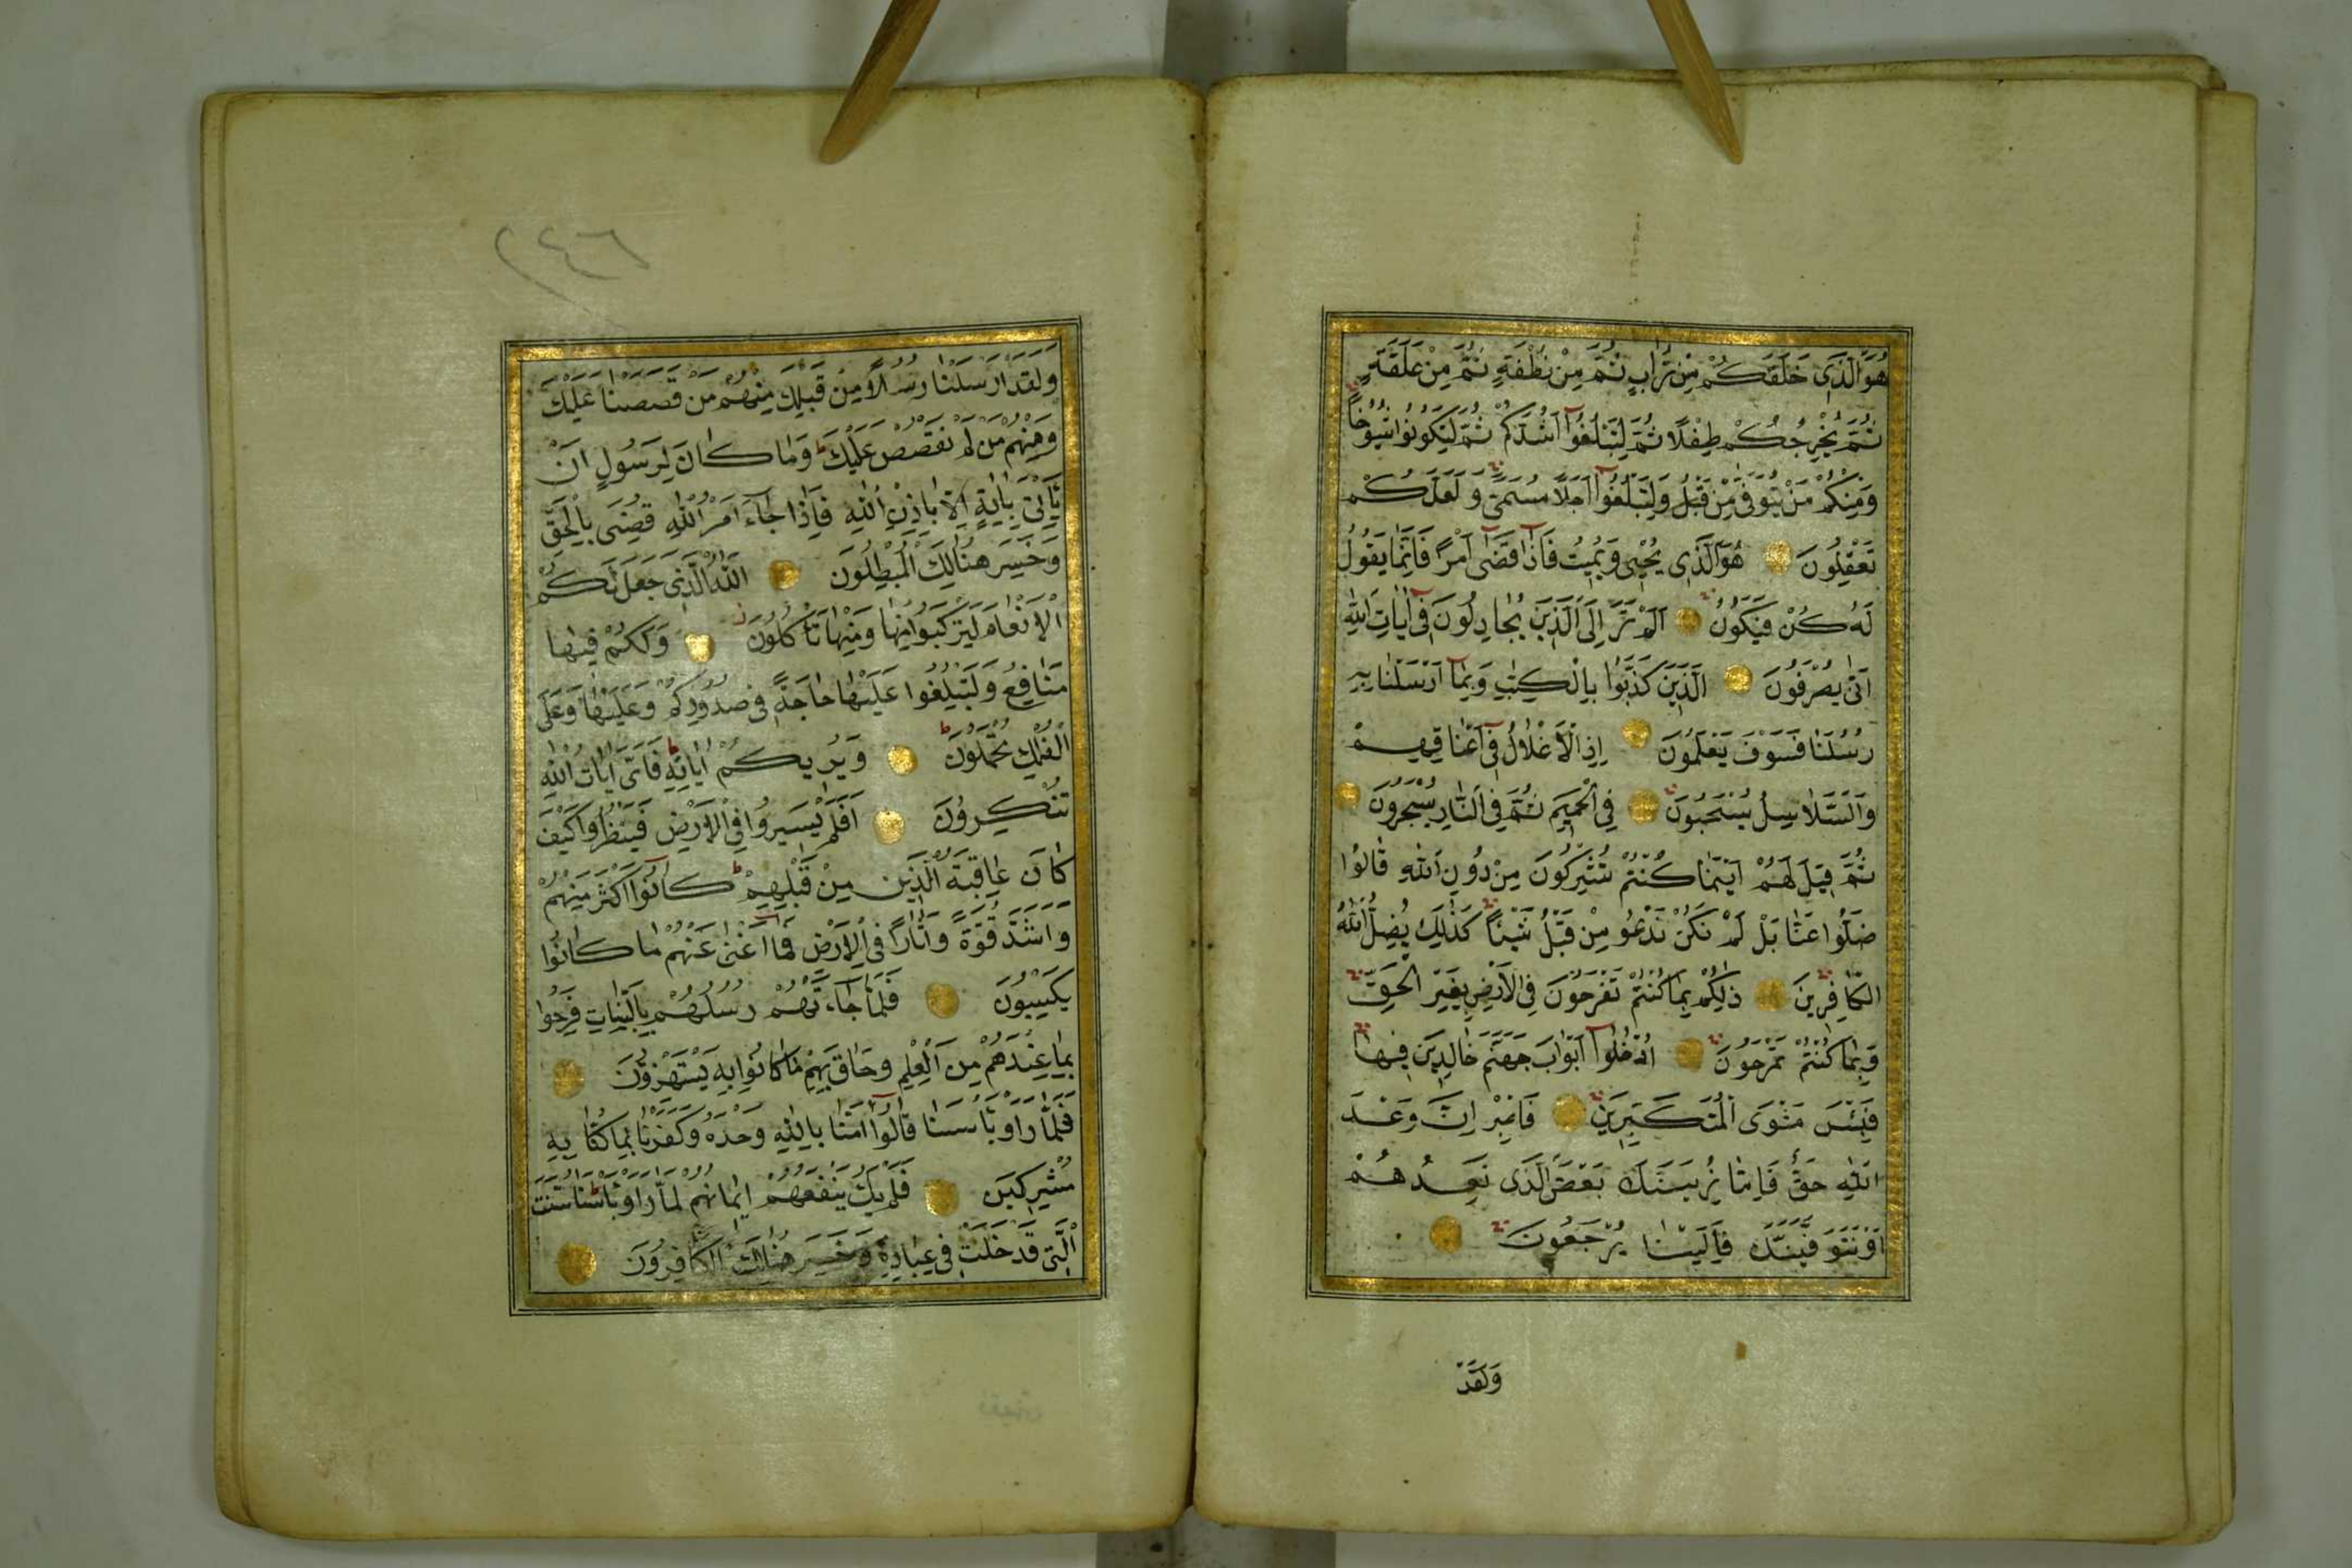 هُوَ الَّذِي خَلَقَكُمْ مِنْ تُرَابٍ ثُمَّ مِنْ نُطْفَةٍ ثُمَّ مِنْ عَلَقَةٍ
ثُمَّ يُخْرِجُكُمْ طِفْلًا ثُمَّ لِتَبْلُغُوا أَشُدَّكُمْ ثُمَّ لِتَكُونُوا شُيُوخًا
وَمِنْكُمْ مَنْ يُتَوَفَّى مِنْ قَبْلُ وَلِتَبْلُغُوا أَجَلًا مُسَمًّى وَلَعَلَّكُمْ
تَعْقِلُونَ هُوَ الَّذِي يُحْيِي وَيُمِيتُ فَإِذَا قَضَى أَمْرًا فَإِنَّمَا يَقُولُ
لَهُ كُنْ فَيَكُونُ أَلَمْ تَرَ إِلَى الَّذِينَ يُجَادِلُونَ فِي آيَاتِ اللَّهِ
أَنَّى يُصْرَفُونَ الَّذِينَ كَذَّبُوا بِالْكِتَابِ وَبِمَا أَرْسَلْنَا بِهِ
رُسُلَنَا فَسَوْفَ يَعْلَمُونَ إِذِ الْأَغْلَالُ فِي أَعْنَاقِهِمْ
وَالسَّلَاسِلُ يُسْحَبُونَ فِي الْحَمِيمِ ثُمَّ فِي النَّارِ يُسْجَرُونَ
ثُمَّ قِيلَ لَهُمْ أَيْنَمَا كُنْتُمْ تُشْرِكُونَ مِنْ دُونِ اللَّهِ قَالُوا
ضَلُّوا عَنَّا بَلْ لَمْ نَكُنْ نَدْعُو مِنْ قَبْلُ شَيْئًا كَذَلِكَ يُضِلُّ اللَّهُ
الْكَافِرِينَ ذَلِكُمْ بِمَا كُنْتُمْ تَفْرَحُونَ فِي الْأَرْضِ بِغَيْرِ الْحَقِّ
وَبِمَا كُنْتُمْ تَمْرَحُونَ ادْخُلُوا أَبْوَابَ جَهَنَّمَ خَالِدِينَ فِيهَا
فَبِئْسَ مَثْوَى الْمُتَكَبِّرِينَ فَاصْبِرْ إِنَّ وَعْدَ
اللَّهِ حَقٌّ فَإِمَّا نُرِيَنَّكَ بَعْضَ الَّذِي نَعِدُهُمْ
أَوْ نَتَوَفَّيَنَّكَ فَإِلَيْنَا يُرْجَعُونَ
وَلَقَدْ
٢٤٦
وَلَقَدْ أَرْسَلْنَا رُسُلًا مِنْ قَبْلِكَ مِنْهُمْ مَنْ قَصَصْنَا عَلَيْكَ
وَمِنْهُمْ مَنْ لَمْ نَقْصُصْ عَلَيْكَ وَمَا كَانَ لِرَسُولٍ أَنْ
يَأْتِيَ بِآيَةٍ إِلَّا بِإِذْنِ اللَّهِ فَإِذَا جَاءَ أَمْرُ اللَّهِ قُضِيَ بِالْحَقِّ
وَخَسِرَ هُنَالِكَ الْمُبْطِلُونَ اللَّهُ الَّذِي جَعَلَ لَكُمُ
الْأَنْعَامَ لِتَرْكَبُوا مِنْهَا وَمِنْهَا تَأْكُلُونَ وَلَكُمْ فِيهَا
مَنَافِعُ وَلِتَبْلُغُوا عَلَيْهَا حَاجَةً فِي صُدُورِكُمْ وَعَلَيْهَا وَعَلَى
الْفُلْكِ تُحْمَلُونَ وَيُرِيكُمْ آيَاتِهِ فَأَيَّ آيَاتِ اللَّهِ
تُنْكِرُونَ أَفَلَمْ يَسِيرُوا فِي الْأَرْضِ فَيَنْظُرُوا كَيْفَ
كَانَ عَاقِبَةُ الَّذِينَ مِنْ قَبْلِهِمْ كَانُوا أَكْثَرَ مِنْهُمْ
وَأَشَدَّ قُوَّةً وَآثَارًا فِي الْأَرْضِ فَمَا أَغْنَى عَنْهُمْ مَا كَانُوا
يَكْسِبُونَ فَلَمَّا جَاءَتْهُمْ رُسُلُهُمْ بِالْبَيِّنَاتِ فَرِحُوا
بِمَا عِنْدَهُمْ مِنَ الْعِلْمِ وَحَاقَ بِهِمْ مَا كَانُوا بِهِ يَسْتَهْزِؤُنَ
فَلَمَّا رَأَوْا بَأْسَنَا قَالُوا آمَنَّا بِاللَّهِ وَحْدَهُ وَكَفَرْنَا بِمَا كُنَّا بِهِ
مُشْرِكِينَ فَلَمْ يَكُ يَنْفَعُهُمْ إِيمَانُهُمْ لَمَّا رَأَوْا بَأْسَنَا سُنَّتَ
الَّتِي قَدْ خَلَتْ فِي عِبَادِهِ وَخَسِرَ هُنَالِكَ الْكَافِرُونَ